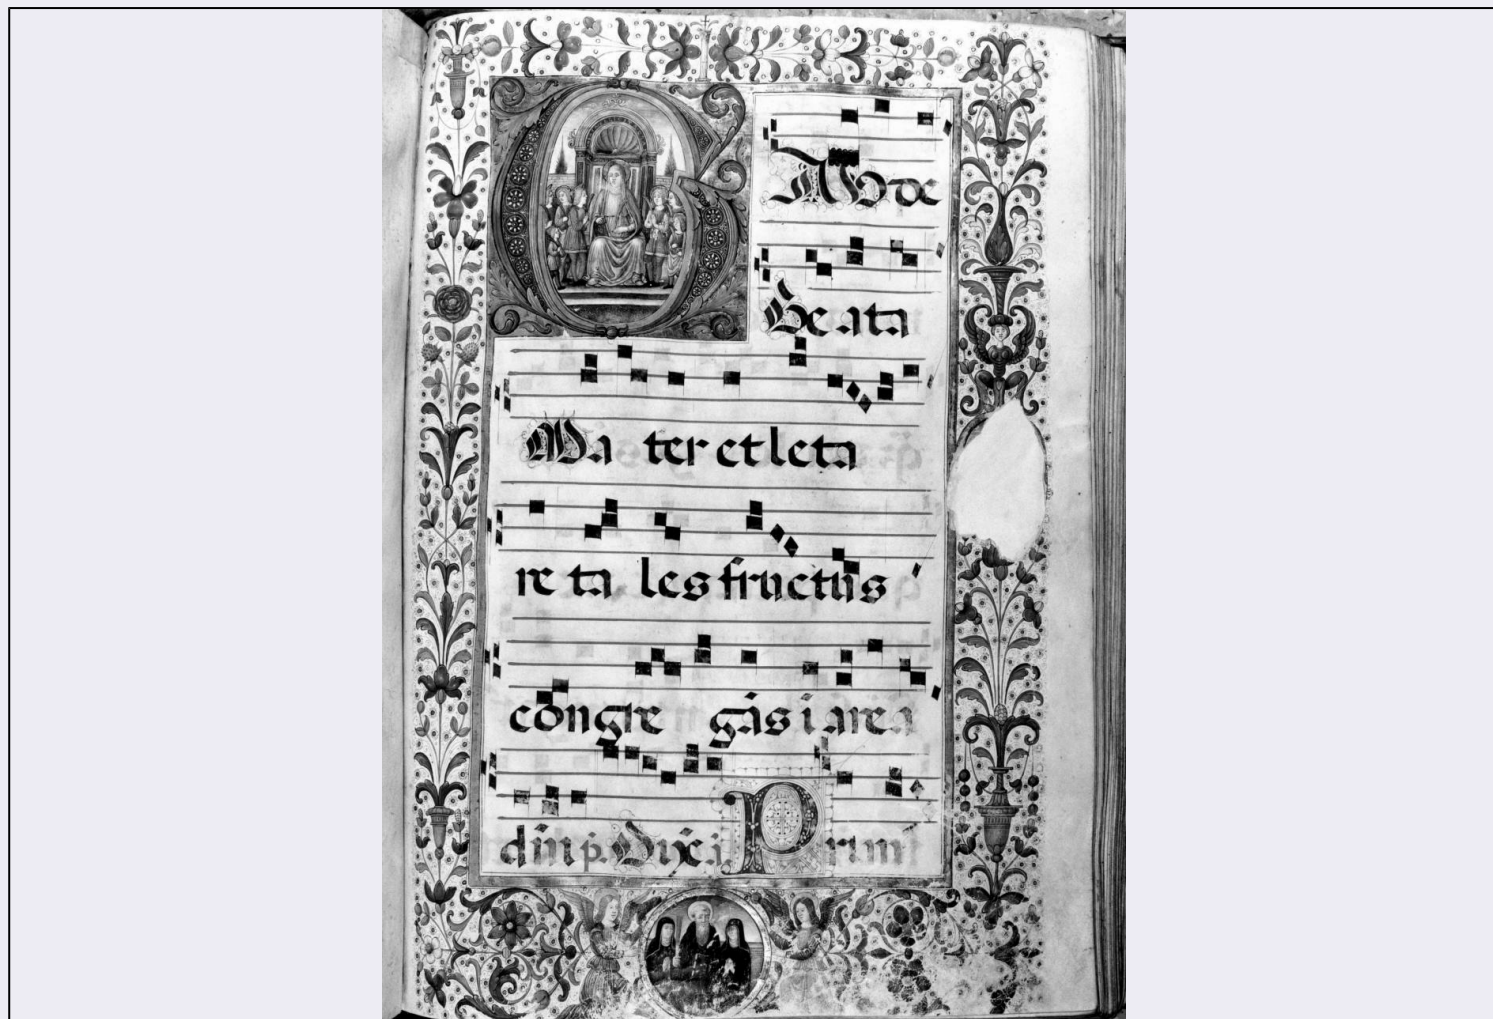 GAUde
Beata
Ma ter et leta
re ta les fructus
congre gas ī area
dñi p. Dixi P